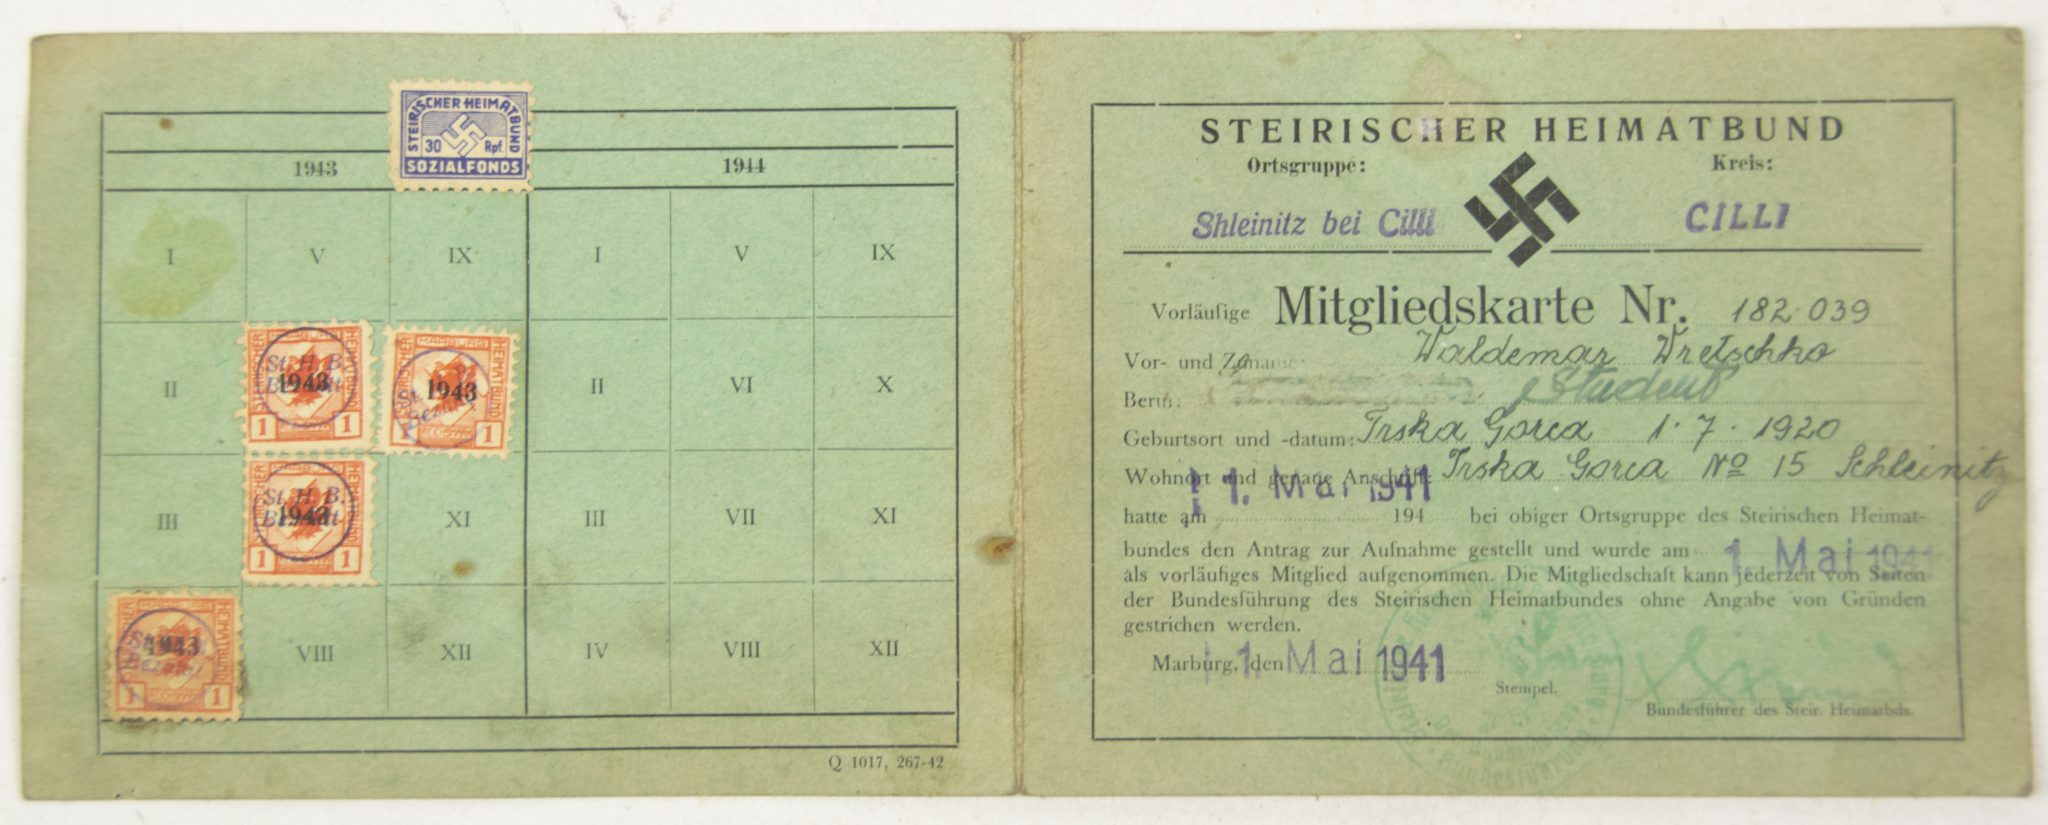 STEIRISCHER HEIMATBUND
30 Rpf.
SOZIALFONDS
1943 1944
I V IX I V IX
II II VI X
III XI III VII XI
VIII XII IV VIII XII
STEIRISCHER MARBURG HEIMATBUND
St. H. B.
1943
Bezahlt
1 1
STEIRISCHER MARBURG HEIMATBUND
1943
1 1
STEIRISCHER MARBURG HEIMATBUND
St. H. B.
1943
Bezahlt
1 1
STEIRISCHER MARBURG HEIMATBUND
1943
1 1
Q 1017, 267-42
STEIRISCHER HEIMATBUND
Ortsgruppe: Kreis:
Shleinitz bei Cilli CILLI
Vorläufige Mitgliedskarte Nr. 182.039
Vor- und Zuname: Waldemar Wretschko
Beruf: Student
Geburtsort und -datum: Trska Gorca 1. 7. 1920
Wohnort und genaue Anschrift: Trska Gorca No 15 Schleinitz
1. Mai 1941
hatte am 194 bei obiger Ortsgruppe des Steirischen Heimat-
bundes den Antrag zur Aufnahme gestellt und wurde am 1. Mai 1941
als vorläufiges Mitglied aufgenommen. Die Mitgliedschaft kann jederzeit von Seiten
der Bundesführung des Steirischen Heimatbundes ohne Angabe von Gründen
gestrichen werden.
Marburg, den 1. Mai 1941
Stempel.
Bundesführer des Steir. Heimatbds.